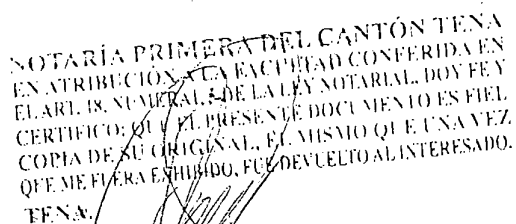 NOTARÍA PRIMERA DEL CANTÓN TENA
EN ATRIBUCIÓN A LA FACULTAD CONFERIDA EN
EL ART. 18, NUMERAL 5 DE LA LEY NOTARIAL, DOY FE Y
CERTIFICO: QUE EL PRESENTE DOCUMENTO ES FIEL
COPIA DE SU ORIGINAL, EL MISMO QUE UNA VEZ
QUE ME FUERA EXHIBIDO, FUE DEVUELTO AL INTERESADO.
TENA,